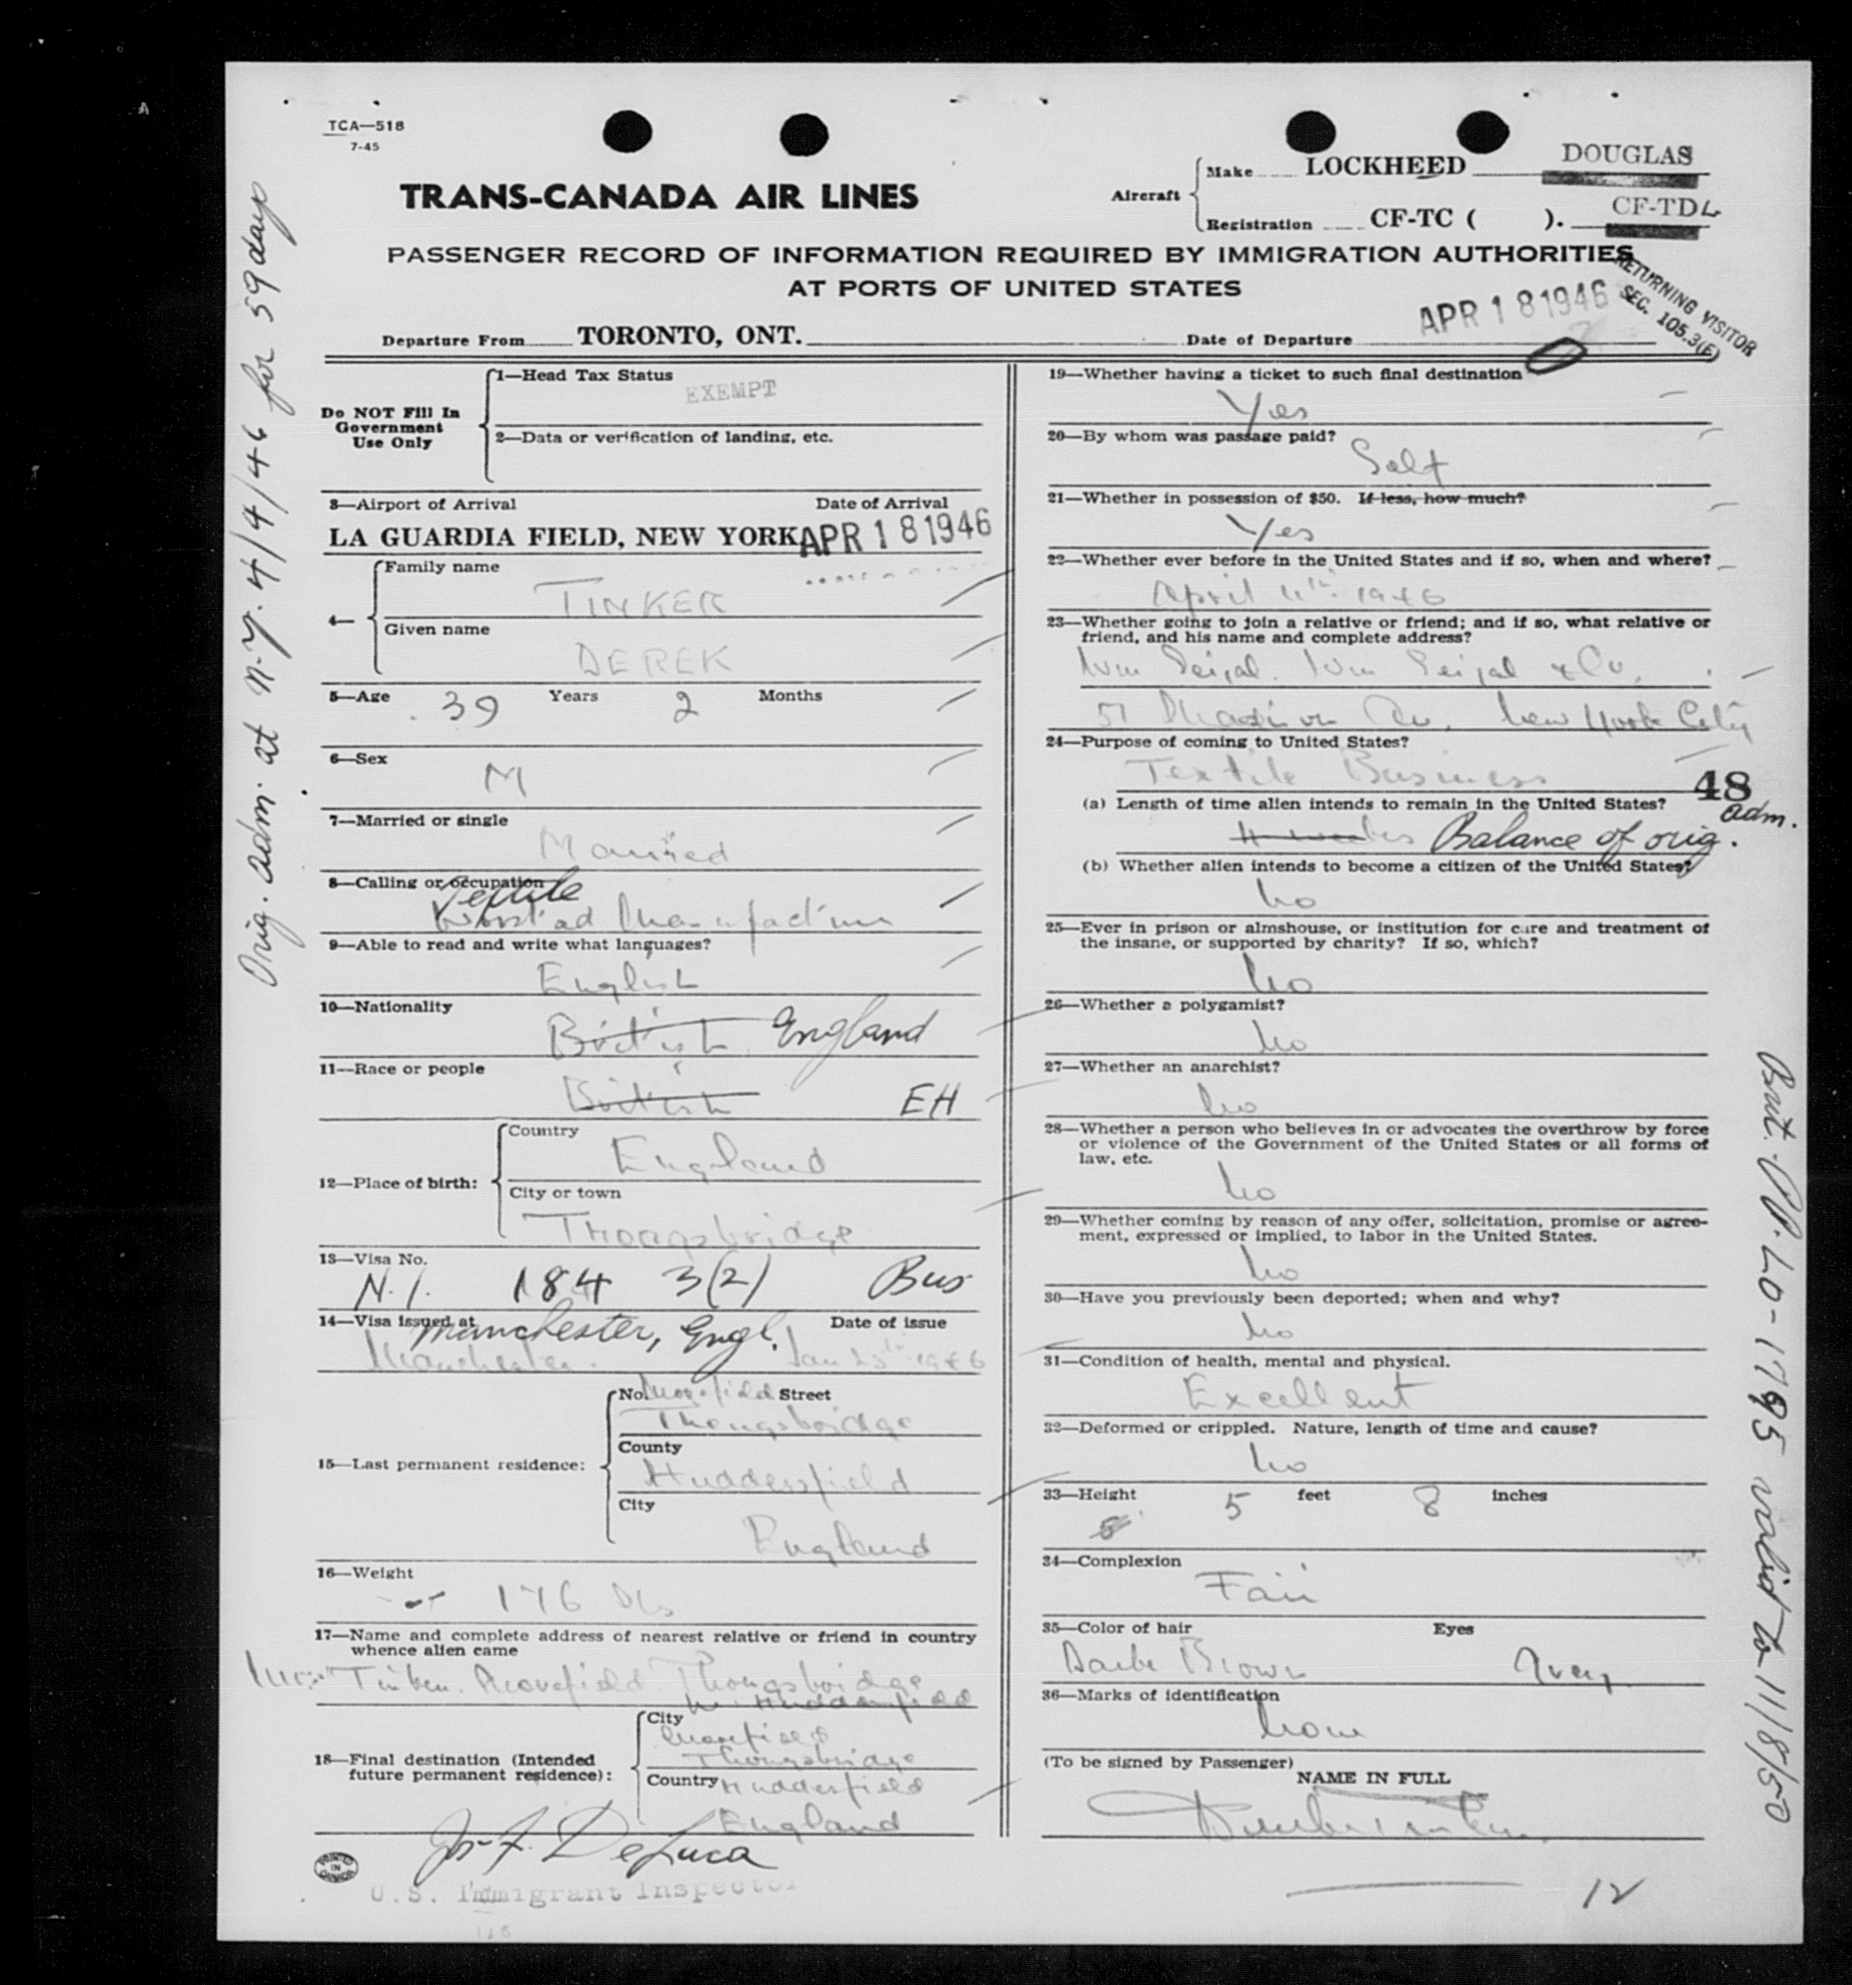 TCA—518
7-45
TRANS-CANADA AIR LINES
Aircraft
Make LOCKHEED DOUGLAS
Registration CF-TC ( ). CF-TDL
PASSENGER RECORD OF INFORMATION REQUIRED BY IMMIGRATION AUTHORITIES
AT PORTS OF UNITED STATES
RETURNING VISITOR
SEC. 105.3(F)
Departure From TORONTO, ONT. Date of Departure APR 18 1946
Orig. adm. at N.Y. 4/4/46 for 59 days
Do NOT Fill In
Government
Use Only
1—Head Tax Status
EXEMPT
2—Data or verification of landing, etc.
3—Airport of Arrival Date of Arrival
LA GUARDIA FIELD, NEW YORK APR 18 1946
4—
Family name
TINKER
Given name
DEREK
5—Age 39 Years 2 Months
6—Sex
M
7—Married or single
Married
8—Calling or occupation
Textile
Manufacturer
9—Able to read and write what languages?
English
10—Nationality
British England
11—Race or people
British EH
12—Place of birth:
Country
England
City or town
Thongsbridge
13—Visa No.
N.I. 184 3(2) Bus
14—Visa issued at Date of issue
Manchester, Engl.
Manchester. Jan 1946
15—Last permanent residence:
No. Street
Thongsbridge
County
Huddersfield
City
England
16—Weight
176 lbs
17—Name and complete address of nearest relative or friend in country
whence alien came
Mrs Tinker. Thongsbridge
Nr. Huddersfield
18—Final destination (Intended
future permanent residence):
City
Thongsbridge
Country Huddersfield
England
Jos. F. DeLuca
U.S. Immigrant Inspector
PRINTED
IN
CANADA
19—Whether having a ticket to such final destination
Yes
20—By whom was passage paid?
Self
21—Whether in possession of $50. If less, how much?
Yes
22—Whether ever before in the United States and if so, when and where?
April 1946
23—Whether going to join a relative or friend; and if so, what relative or
friend, and his name and complete address?
Wm Seigal. Wm Seigal & Co.
51 Madison Av. New York City
24—Purpose of coming to United States?
Textile Business
48
(a) Length of time alien intends to remain in the United States?
weeks Balance of orig. adm.
(b) Whether alien intends to become a citizen of the United States?
No
25—Ever in prison or almshouse, or institution for care and treatment of
the insane, or supported by charity? If so, which?
No
26—Whether a polygamist?
No
27—Whether an anarchist?
No
28—Whether a person who believes in or advocates the overthrow by force
or violence of the Government of the United States or all forms of
law, etc.
No
29—Whether coming by reason of any offer, solicitation, promise or agree-
ment, expressed or implied, to labor in the United States.
No
30—Have you previously been deported; when and why?
No
31—Condition of health, mental and physical.
Excellent
32—Deformed or crippled. Nature, length of time and cause?
No
33—Height 5 feet 8 inches
34—Complexion
Fair
35—Color of hair Eyes
Dark Brown Grey
36—Marks of identification
None
(To be signed by Passenger)
NAME IN FULL
Derek Tinker
12
Brit. PP. LO-1795 valid to 11/8/50